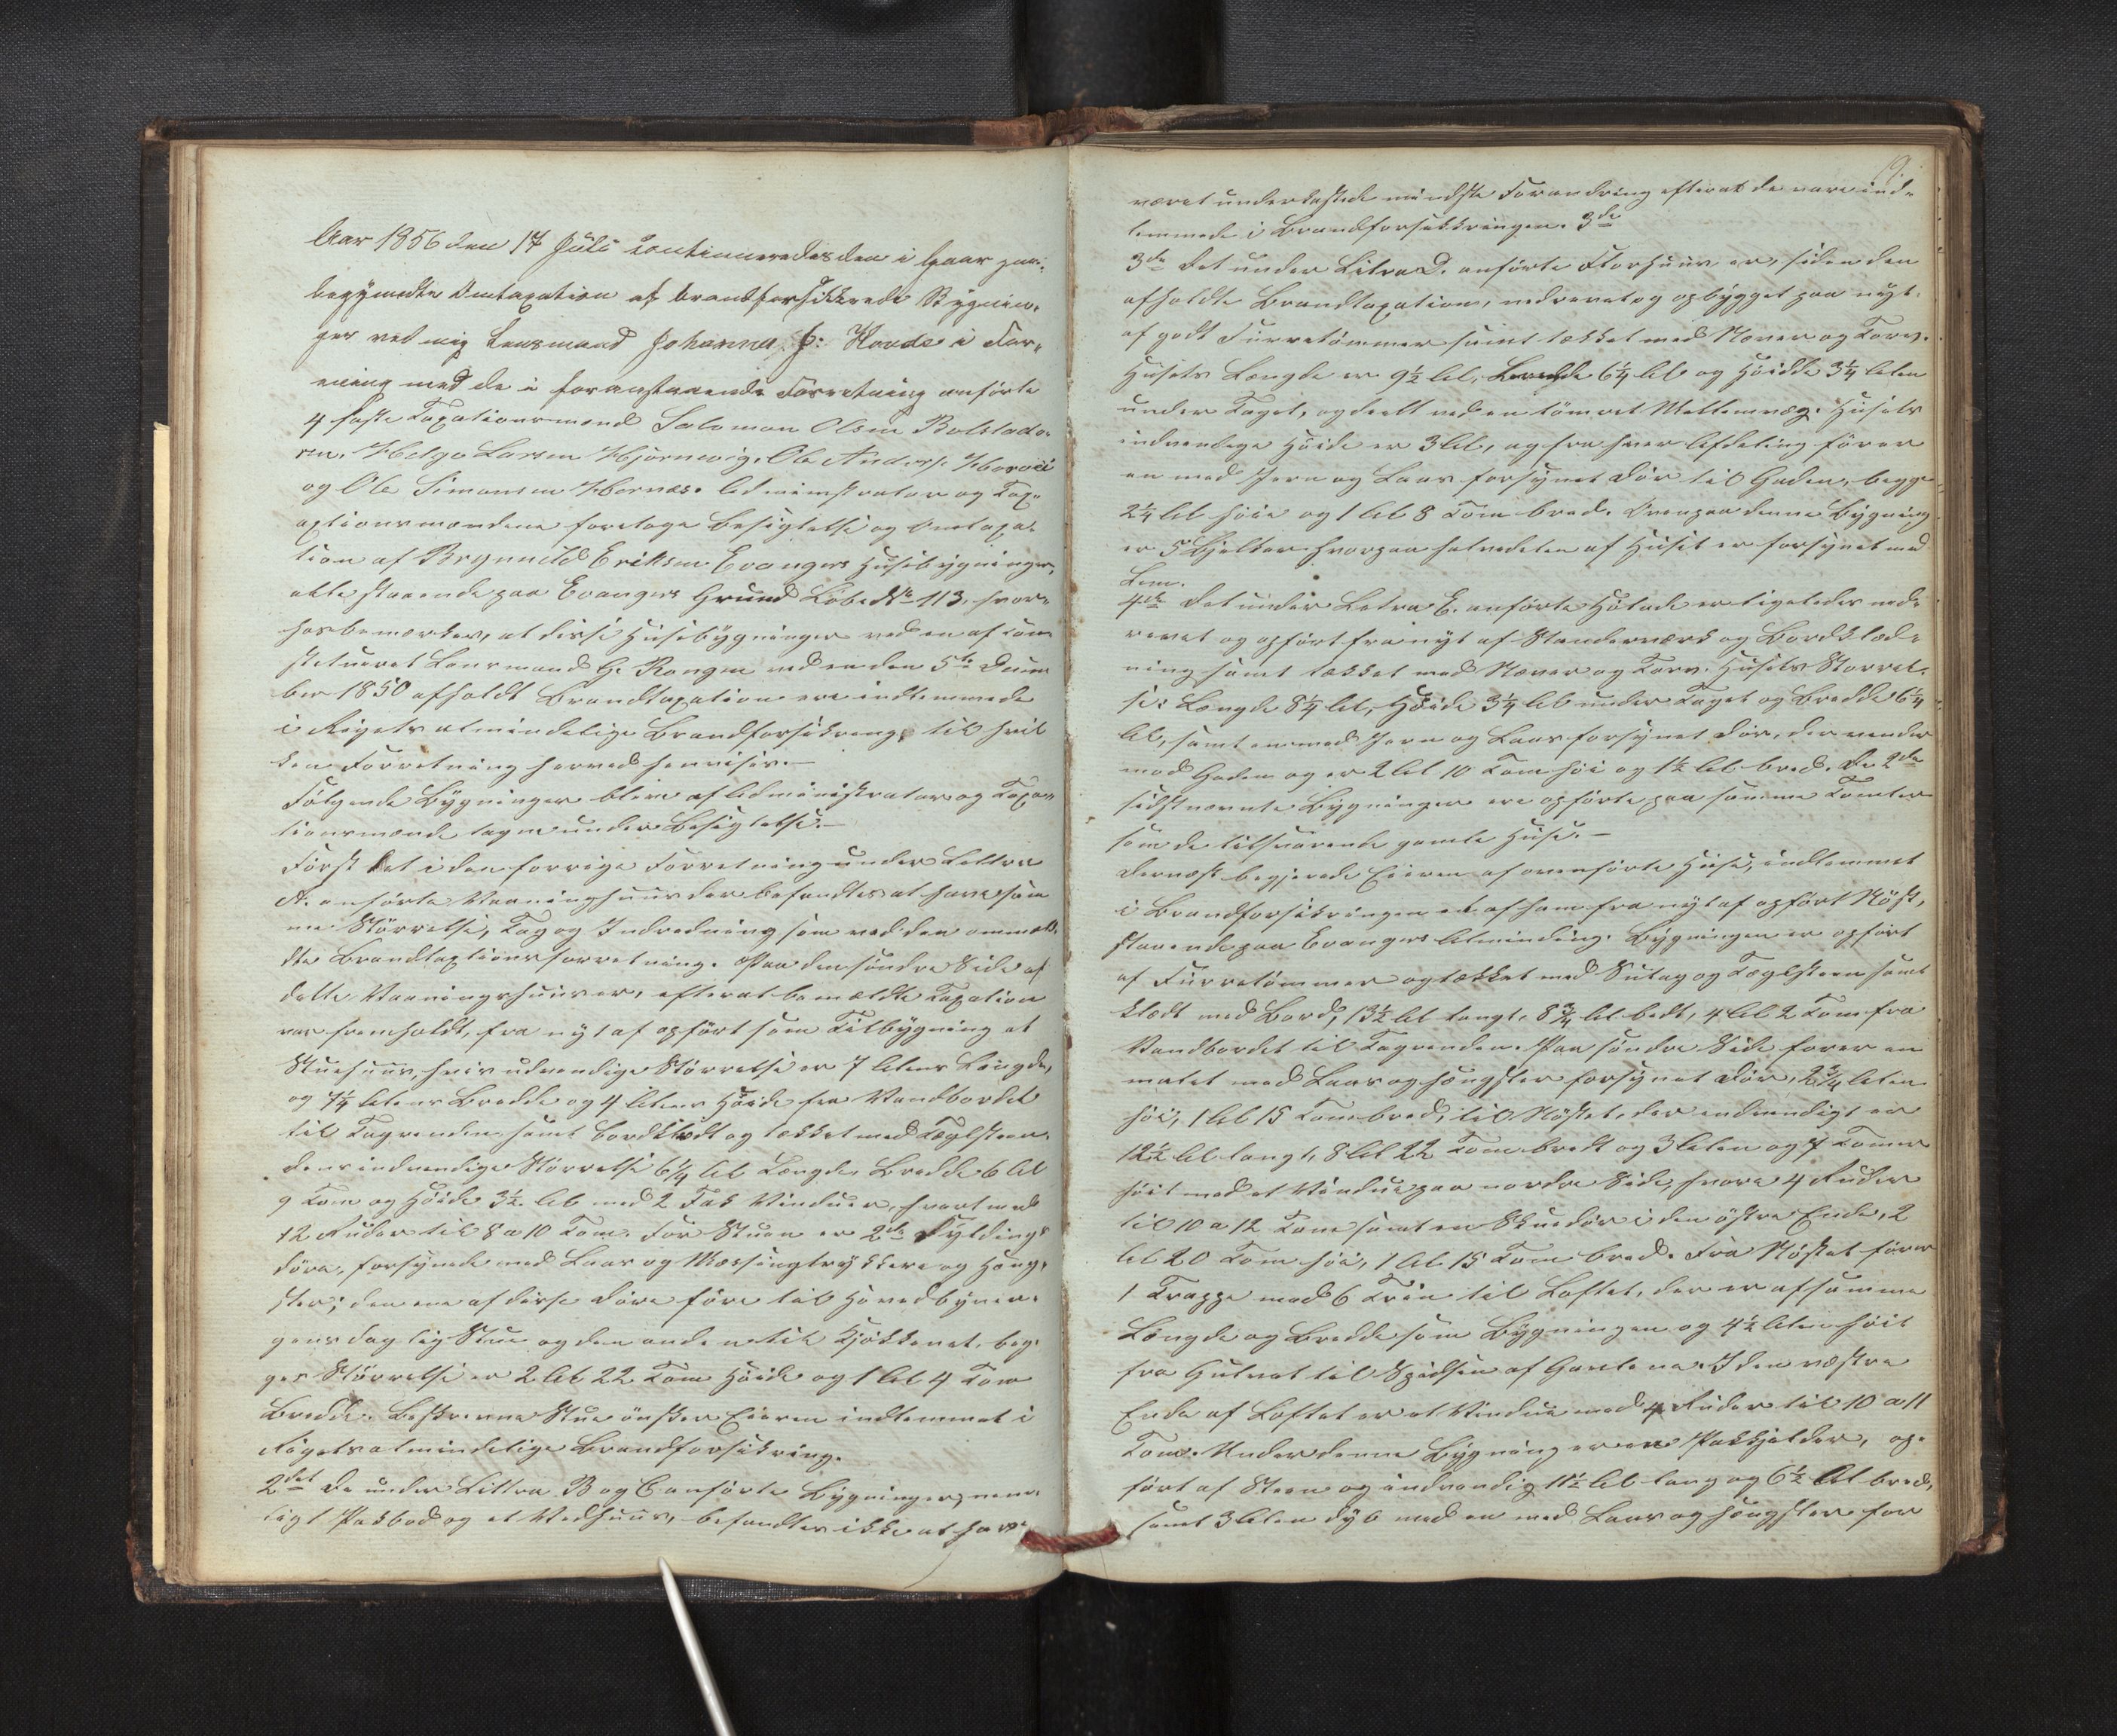 Aar 1856 den 17 Juli continueredes den i Gaar paa-
begyndte Omtaxation af brandforsikkrede Bygnin-
ger ved mig Lensmand Johannes J: Horde i For-
ening med de i foranstaaende Forretning anførte
4 faste Taxationsmænd Salomon Olsen Bolstadø-
ren, Helge Larsen Hjørnevig, Ole Anders.
og Ole Simonsen Hernæs. Administrator og Tax-
ationsmændene foretoge Besigtelse og Omtaxa-
tion af Brynnild Eriksen Evangers Huusbygninger,
alle staaende paa Evangers Grund Løbe No 113, hvor-
hos bemærkes, at disse Huusbygninger ved en af con-
stitueret Lensmand G. Rongen ved en den 5te Decem
ber 1850 afholdt Brandtaxation ere indlemmede
i Rigets almindelige Brandforsikring, til hvil
ken Forretning herved henvises.–
Følgende Bygninger blive af Administrator og Taxa-
tionsmænd tagne under Besigtelse.–
Først Det i den forrige Forretning under Littra
A. anførte Vaaninghuus der befandtes at have sam
me Størrelse, Tag og Indredning som ved den ommeld-
dte Brandtaxtionsforretning. Paa den søndre Side af
dette Vaaningshuus er, efterat bemældte Taxation
var fremholdt, fra nyt af opført som Tilbygning et
Stuehuus, hvis udvendige Størrelse er 7 Alens Længde,
og 7¼ Alens Bredde og 4 Alens Høide fra Vandbordet
til Tagrenden samt bordklædt og tækket med Tæglsteen.
Dens indvendige Størrelse 6¼ Al Længde, Bredde 6 Al
9 Tom og Høide 3½ Al med 2 Fak Vinduer, hvert med
12 Ruder til 8 a 10 Tom. For Stuen er 2de Fyldings
døre, forsynede med Laas og Messingtrykkere og Hæng-
sler; den ene af disse Døre føre til Hovedbygnin-
gens daglig Stue og den anden til Kjøkkenet, beg-
ges Størrelse er 2 Al 22 Tom Høide og 1 Al 4 Tom
Bredde. Beskrevne Stue ønsker Eieren indlemmet i
Rigets almindelige Brandforsikring.
2det De under Littra B og C anførte Bygninger, nem-
ligt Pakbod og et Vedhuus, befandtes ikke at have
9.
været underkastede mindste Forandring efterat de vare ind-
lemmede i Brandforsikkringen. 3de
3de Det under Litra D. anførte Florhuus er, siden den
afholdte Brandtaxation, nedrevet og opbygget paa nyt
af godt Furretømmer samt tækket med Næver og Torv.
Husets Længde er 9½ Al, Bredde 6¼ Al og Høidde 3¼ Alen
under Taget, og deelt ved en tømret Mellemvæg. Husets
indvendige Høide er 3 Al, og fra hver Afdeling fører
en med Jern og Laas forsynet Dør til Gaden, begge
2¼ Al høie og 1 Al 8 Tom bred. Ovenpaa denne Bygning
er 5 Bjelker hvorpaa halvedelen af Huset er forsynet med
Lem.
4de Det under Letra E. anførte Hølade er ligeledes ned-
revet og opført fra nyt af Stenderværk og Bordklæd-
ning samt tækket med Næver og Torv. Husets Størrel-
se: Længde 8¼ Al, Høide 3¼ Al under Taget og Bredde 6¼
Al, samt en med Jern og Laas forsynet Dør, der vender
mod Gaden og er 2 Al 10 Tom høi og 1½ Al bred. De 2de
sidstnævnte Bygninger ere opførte paa samme Tomter
som de tilsvarende gamle Huse.–
Dernæst begjerede Eieren af ovenførte Huse, indlemmet
i Brandforsikringen et af ham fra nyt af opført Nøst,
staaende paa Evangers Alminding. Bygningen er opført
af Furretømmer og tækket med Sutag og Tæglsteen samt
klædt med Bord, 13½ Al langt, 8¾ Al bedt, 4 Al 2 Tom fra
Vandbordet til Tagrenden. Paa søndre Side fører en
malet med Laas og hængsler forsynet Dør, 2¾ Alen
høi, 1 Al 15 Tom bred, til Nøstet, der indvendigt er
12½ Al langt, 8 Al 22 Tom bredt og 3 Alen og 7 Tommer
høit med et Vindue paa nordre Side, hvore 4 Ruder
til 10 a 12 Tom samt en Skuedør i den østre Ende, 2
Al 20 Tom høi, 1 Al 15 Tom bred. Fra Nøstet fører
1 Trappe med 6 Trin til Loftet, der er af samme
Længde og Bredde som Bygningen og 4½ Alen høit
fra Gulvet til Spidsen af Gavlene. I den væstre
Ende af Loftet er et Vindue med 4 Ruder til 10 a 11
Tom. Under denne Bygning er en Pakkjelder, op-
ført af Steen og indvendig 11½ Al lang og 6½ Al bred,
samt 3 Alen dyb med en med Laas og hængsler for